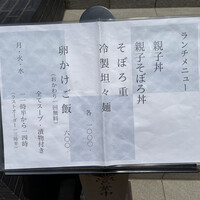 ランチメニュー
親子丼
親子そぼろ丼
そぼろ重
冷製坦々麺
各 一〇〇〇
卵かけご飯 八〇〇
(おかわり一回無料)
全てスープ・漬物付き
月・火・水
一一時半から一四時